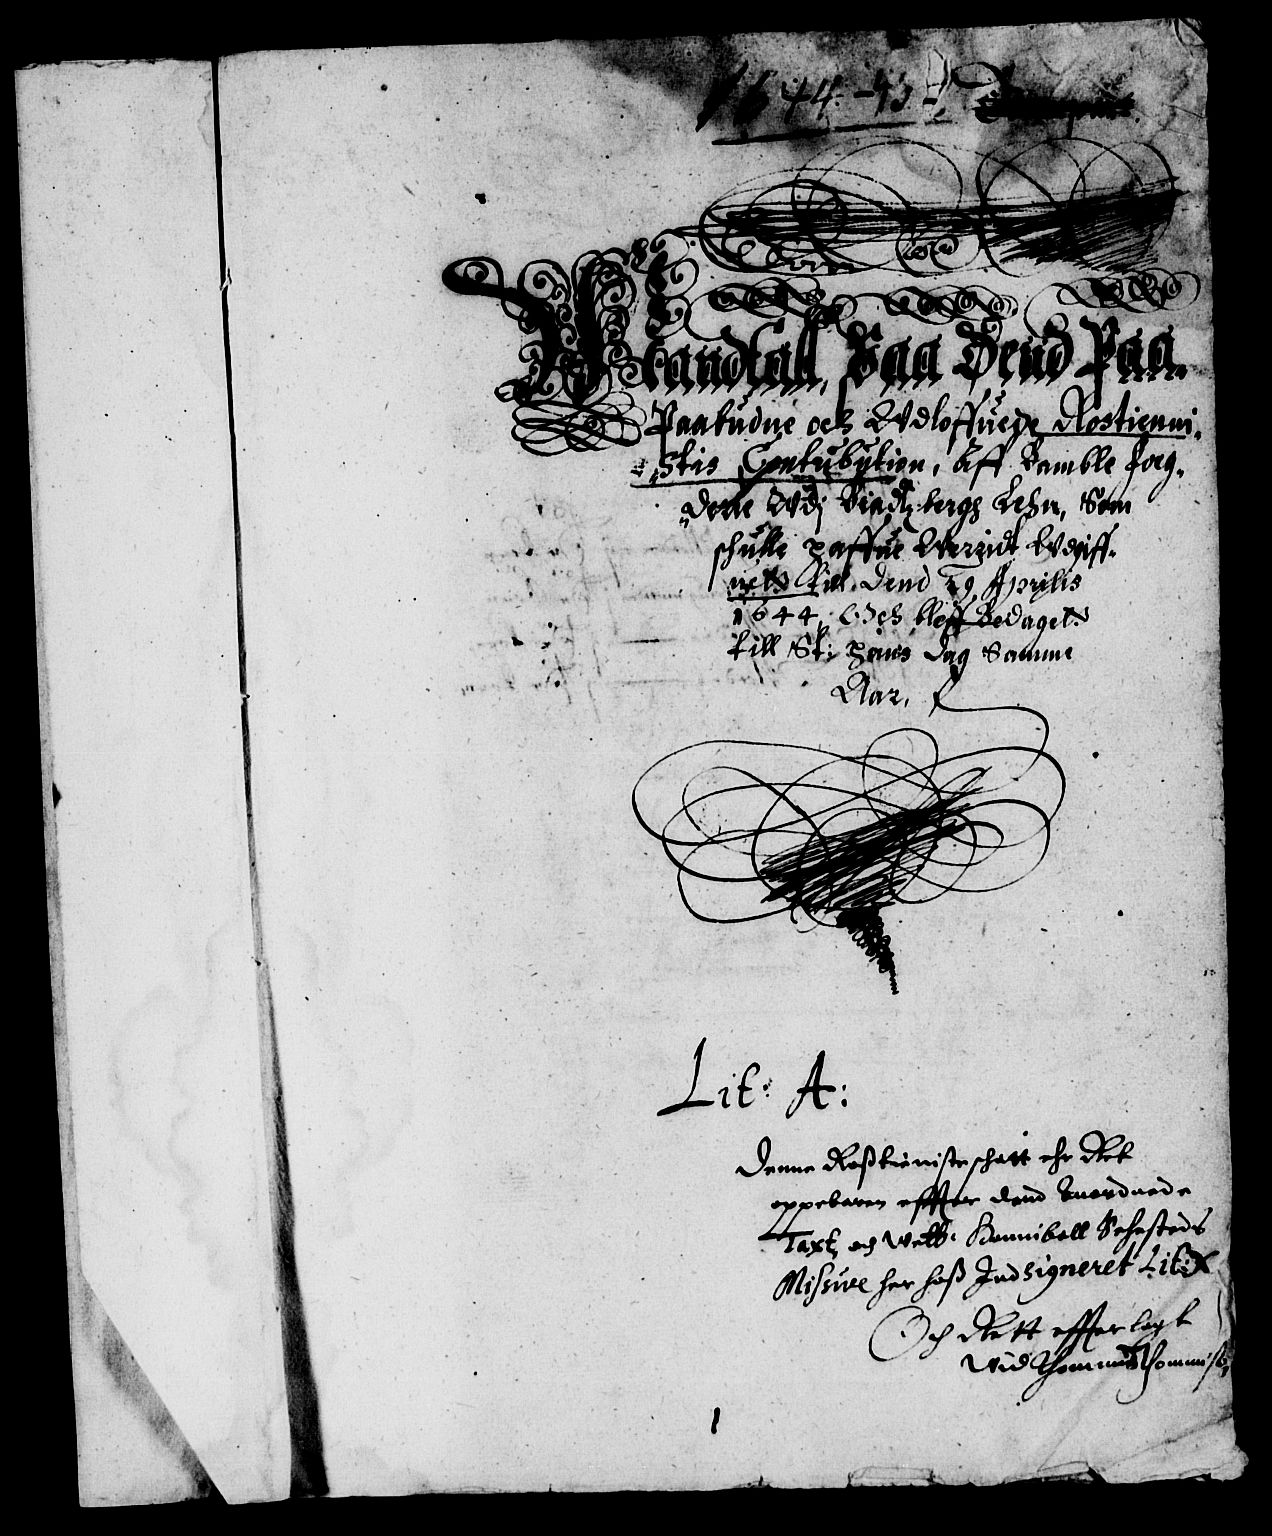 1644-45
Mandtall, Paa Dend Paa
Paabudne och Udloffuede Rostienni,
stis Contribution, Aff Bamble fog,
derie Udj Bradtzbergs Lehn, Som
schulle haffue Werridt Udgiff,
uet till dend 29 Aprilis
1644, Och bleff Bedaget
till St: Hans dag Samme
Aar,
Lit: A:
Denne Roßtienisteschatt ehr Ret
oppebaren effter dend anordnede
Taxt, och Welb: Hanniball Sehesteds
Missive her hoß Indsigneret Lit:
Och Rett efferlagt
wid
1